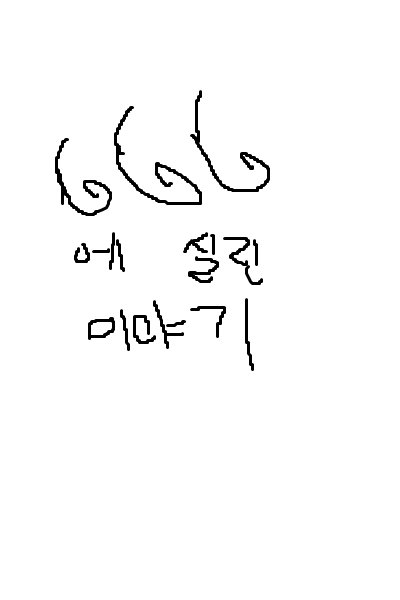 666
에 실린
이야기